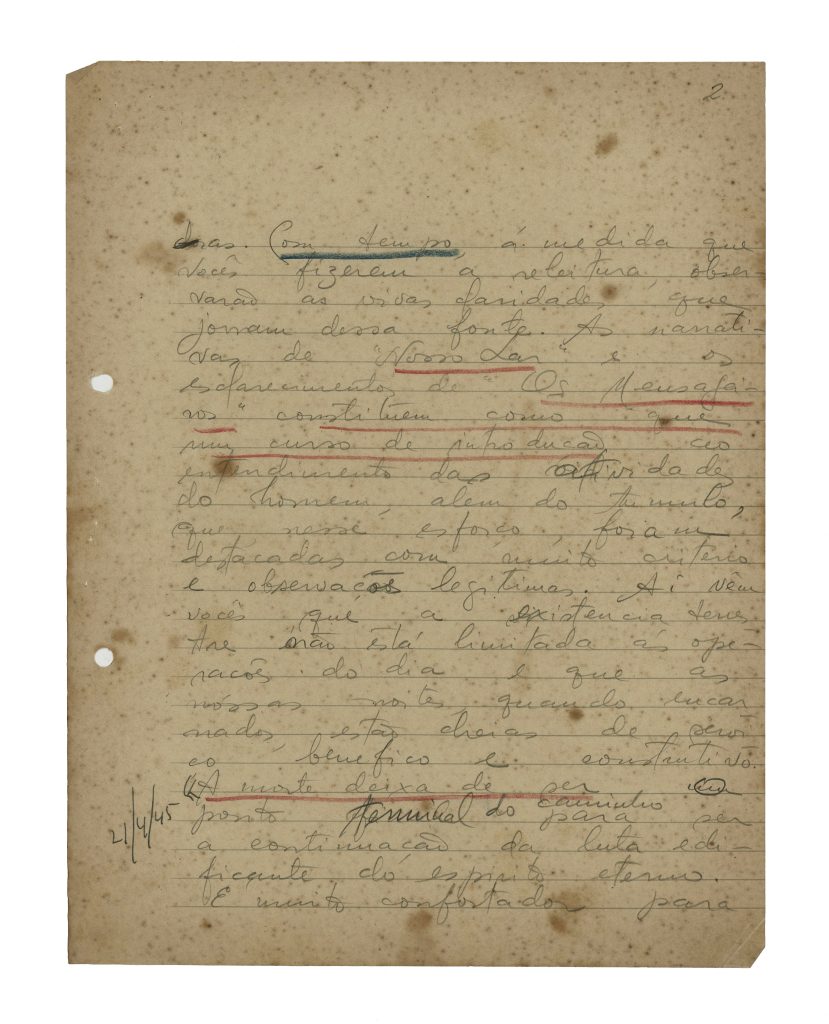 2
doras. Com tempo, á medida que
vocês fizerem a releitura, obser-
varão as vivas claridades que
jorram dessa fonte. As narrati-
vas de "Nosso Lar" e os
esclarecimentos de "Os Mensagei-
ros" constituem como que
um curso de introdução ao
entendimento das atividades
do homem, além do tumulo,
que, nesse esforço, foram
destacadas com muito criterio
e observações legitimas. Aí vêm
vocês que a existencia terres
tre não está limitada ás ope-
racões do dia e que as
nóssas noites, quando encar
nados, estão cheias de servi
ço benefico e construtivo.
"A morte deixa de ser um
ponto terminal do caminho para ser
21/4/45
a continuação da luta edi-
ficante do espirito eterno.
É muito confortador para